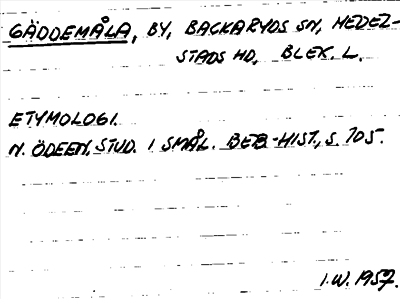 GÄDDEMÅLA, BY, BACKARYDS SN, MEDEL-
STADS HD, BLEK. L.
ETYMOLOGI.
N. ÖDEEN, STUD. I SMÅL. BEB-HIST., S. 105.
I.W. 1957.